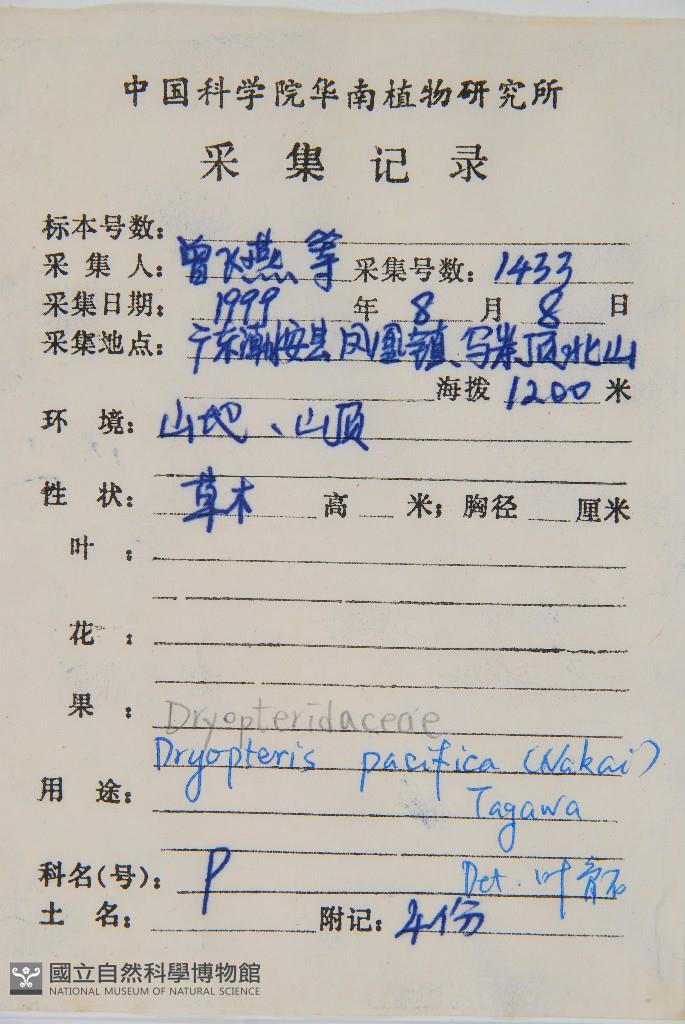 中国科学院华南植物研究所
采集记录
标本号数:
采集人: 曾飞燕 等 采集号数: 1433
采集日期: 1999 年 8 月 8 日
采集地点: 广东潮安县凤凰镇 乌岽顶北山
海拨 1200 米
环境: 山地、山顶
性状: 草木 高 米; 胸径 厘米
叶:
花:
果: Dryopteridaceae
Dryopteris pacifica (Nakai)
用途: Tagawa
科名(号): P Det. 叶育石
土名: 附记: 4份
國立自然科學博物館
NATIONAL MUSEUM OF NATURAL SCIENCE